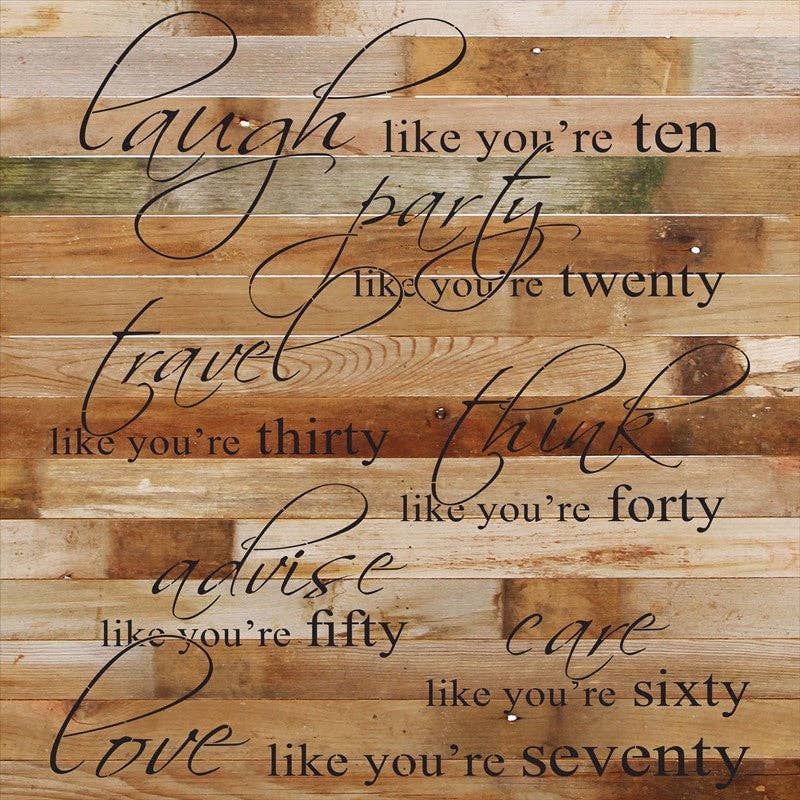 laugh like you're ten
party
like you're twenty
travel
like you're thirty
think
like you're forty
advise
like you're fifty
care
like you're sixty
love like you're seventy